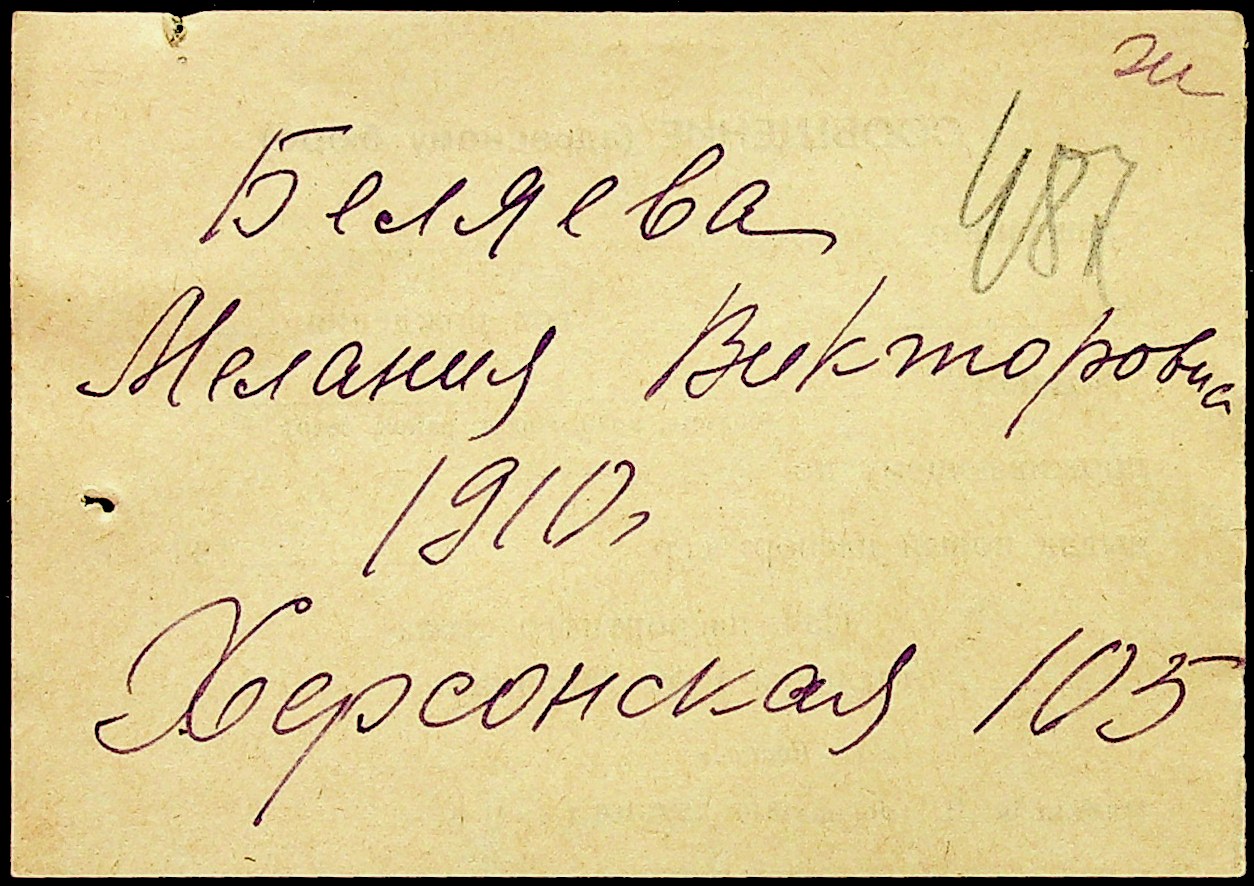 487
Беляева
Мелания Викторовна
1910г
Херсонская 105